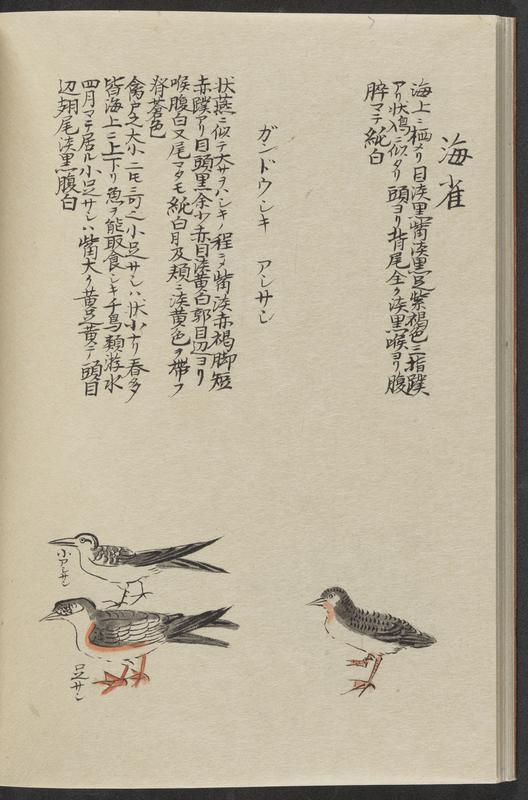 海雀
海上ニ栖メリ目淡黒觜淡黒足紫褐色三指蹼
アリ状鳬ニ似タリ頭ヨリ背尾全ク淡黒喉ヨリ腹
脺マテ純白
ガンドウシキ アシサシ
状燕ニ似テ大サヲハシキノ程ニシテ觜淡赤褐脚短
赤蹼アリ目頭黒ニ余少シ赤目淡黄白郭目辺ヨリ
喉腹白又尾マタモ純白月及頬ニ淡黄色ヲ帯フ
脊蒼色
禽戸之大小二氏三可之小足サシハ状小ナリ春多
皆海上ニ上下リ魚ヲ能取食シキ千鳥類游水
四月マテ居ル小足サシハ觜大ク黄足黄ニテ頭目
辺翅尾淡黒腹白
小アシサシ
足サシ